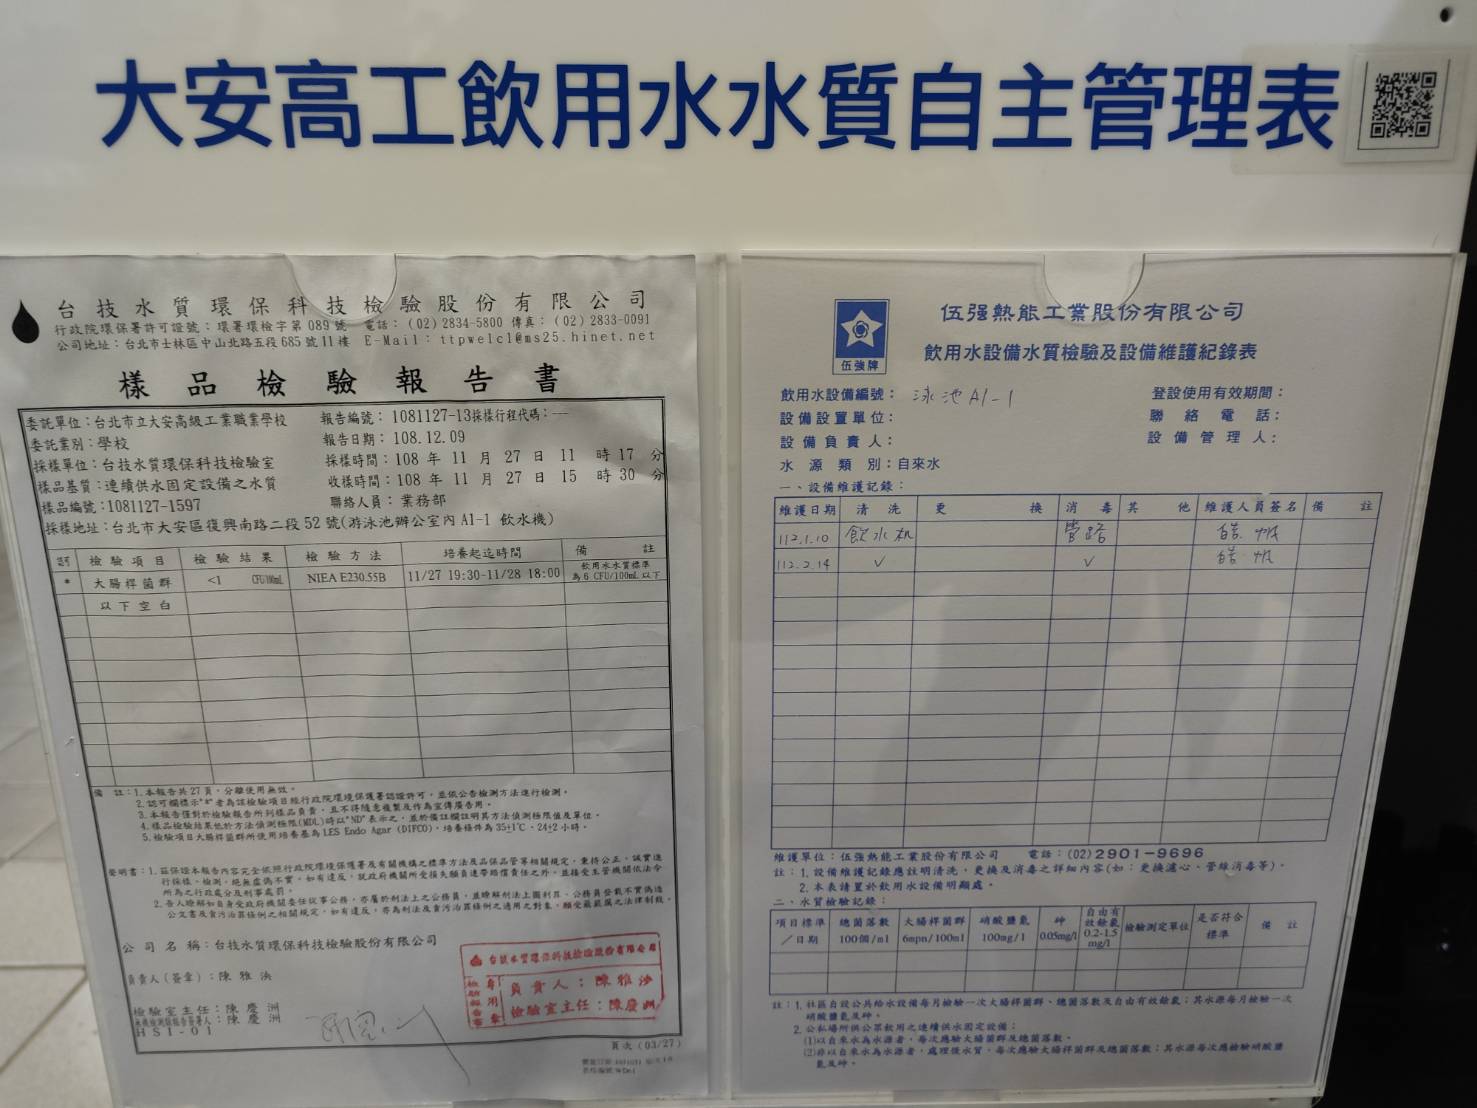 大安高工飲用水水質自主管理表
台技水質環保科技檢驗股份有限公司
行政院環保署許可證號：環署環檢字第089號 電話：(02)2834-5800 傳真：(02)2833-0091
公司地址：台北市士林區中山北路五段685號11樓 E-Mail：ttpwelcl@ms25.hinet.net
樣品檢驗報告書
委託單位：台北市立大安高級工業職業學校 報告編號：1081127-13採樣行程代碼：---
委託業別：學校 報告日期：108.12.09
採樣單位：台技水質環保科技檢驗室 採樣時間：108 年 11 月 27 日 11 時 17 分
樣品基質：連續供水固定設備之水質 收樣時間：108 年 11 月 27 日 15 時 30 分
樣品編號：1081127-1597 聯絡人員：業務部
採樣地址：台北市大安區復興南路二段52號(游泳池辦公室內A1-1 飲水機)
檢驗項目 檢驗結果 檢驗方法 培養起迄時間 備註
* 大腸桿菌群 <1 CFU/100mL NIEA E230.55B 11/27 19:30-11/28 18:00 飲用水水質標準
為 6 CFU/100mL 以下
以下空白
備 註：1.本報告共27頁，分離使用無效。
2.認可欄標示"*"者為該檢驗項目經行政院環境保護署認證許可，並依公告檢測方法進行檢測。
3.本報告僅對於檢驗報告所列樣品負責，且不得隨意複製及作為宣傳廣告用。
4.樣品檢驗結果低於方法偵測極限(MDL)時以"ND"表示之，並於備註欄註明其方法偵測極限值及單位。
5.檢驗項目大腸桿菌群所使用培養基為 LES Endo Agar (DIFCO)，培養條件為35±1℃，24±2小時。
聲明書：1.茲保證本報告內容完全依照行政院環境保護署及有關機構之標準方法及品保品管等相關規定，秉持公正、誠實進
行採樣、檢測，絕無虛偽不實，如有違反，就政府機關所受損失願負連帶賠償責任之外，並接受主管機關依法令
所為之行政處分及刑事處罰。
2.吾人瞭解如自身受政府機關委任從事公務，亦屬於刑法上之公務員，並瞭解刑法上圖利罪、公務員登載不實偽造
公文書及貪污治罪條例之相關規定，如有違反，亦為刑法及貪污治罪條例之適用之對象，願受最嚴厲之法律制裁。
公司名稱：台技水質環保科技檢驗股份有限公司
負責人(簽章)：陳雅
檢驗室主任：陳慶洲
陳慶洲
HSI-01
台技水質環保科技檢驗股份有限公司
檢驗報告專用章
負責人：陳雅
檢驗室主任：陳慶洲
頁次 (03/27)
伍強牌
伍强熱能工業股份有限公司
飲用水設備水質檢驗及設備維護紀錄表
飲用水設備編號：泳池A1-1 登設使用有效期間：
設備設置單位： 聯絡電話：
設備負責人： 設備管理人：
水源類別：自來水
一、設備維護記錄：
維護日期 清洗 更換 消毒 其他 維護人員簽名 備註
112.1.10 飲水机 管路
112.2.14 ✓ ✓
維護單位：伍強熱能工業股份有限公司 電話：(02)2901-9696
註：1.設備維護記錄應註明清洗、更換及消毒之詳細內容(如：更換濾心、管線消毒等)。
2.本表請置於飲用水設備明顯處。
二、水質檢驗記錄：
項目標準／日期 總菌落數100個/ml 大腸桿菌群6mpn/100ml 硝酸鹽氮100mg/l 砷0.05mg/l 自由有效餘氯0.2-1.5mg/l 檢驗測定單位 是否符合標準 備註
註：1.社區自設公共給水設備每月檢驗一次大腸桿菌群、總菌落數及自由有效餘氯；其水源每月檢驗一次
硝酸鹽氮及砷。
2.公私場所供公眾飲用之連續供水固定設備：
(1)以自來水為水源者，每次應驗大腸菌群及總菌落數。
(2)非以自來水為水源者，處理後水質，每次應驗大腸桿菌群及總菌落數；其水源每次應檢驗硝酸鹽
氮及砷。